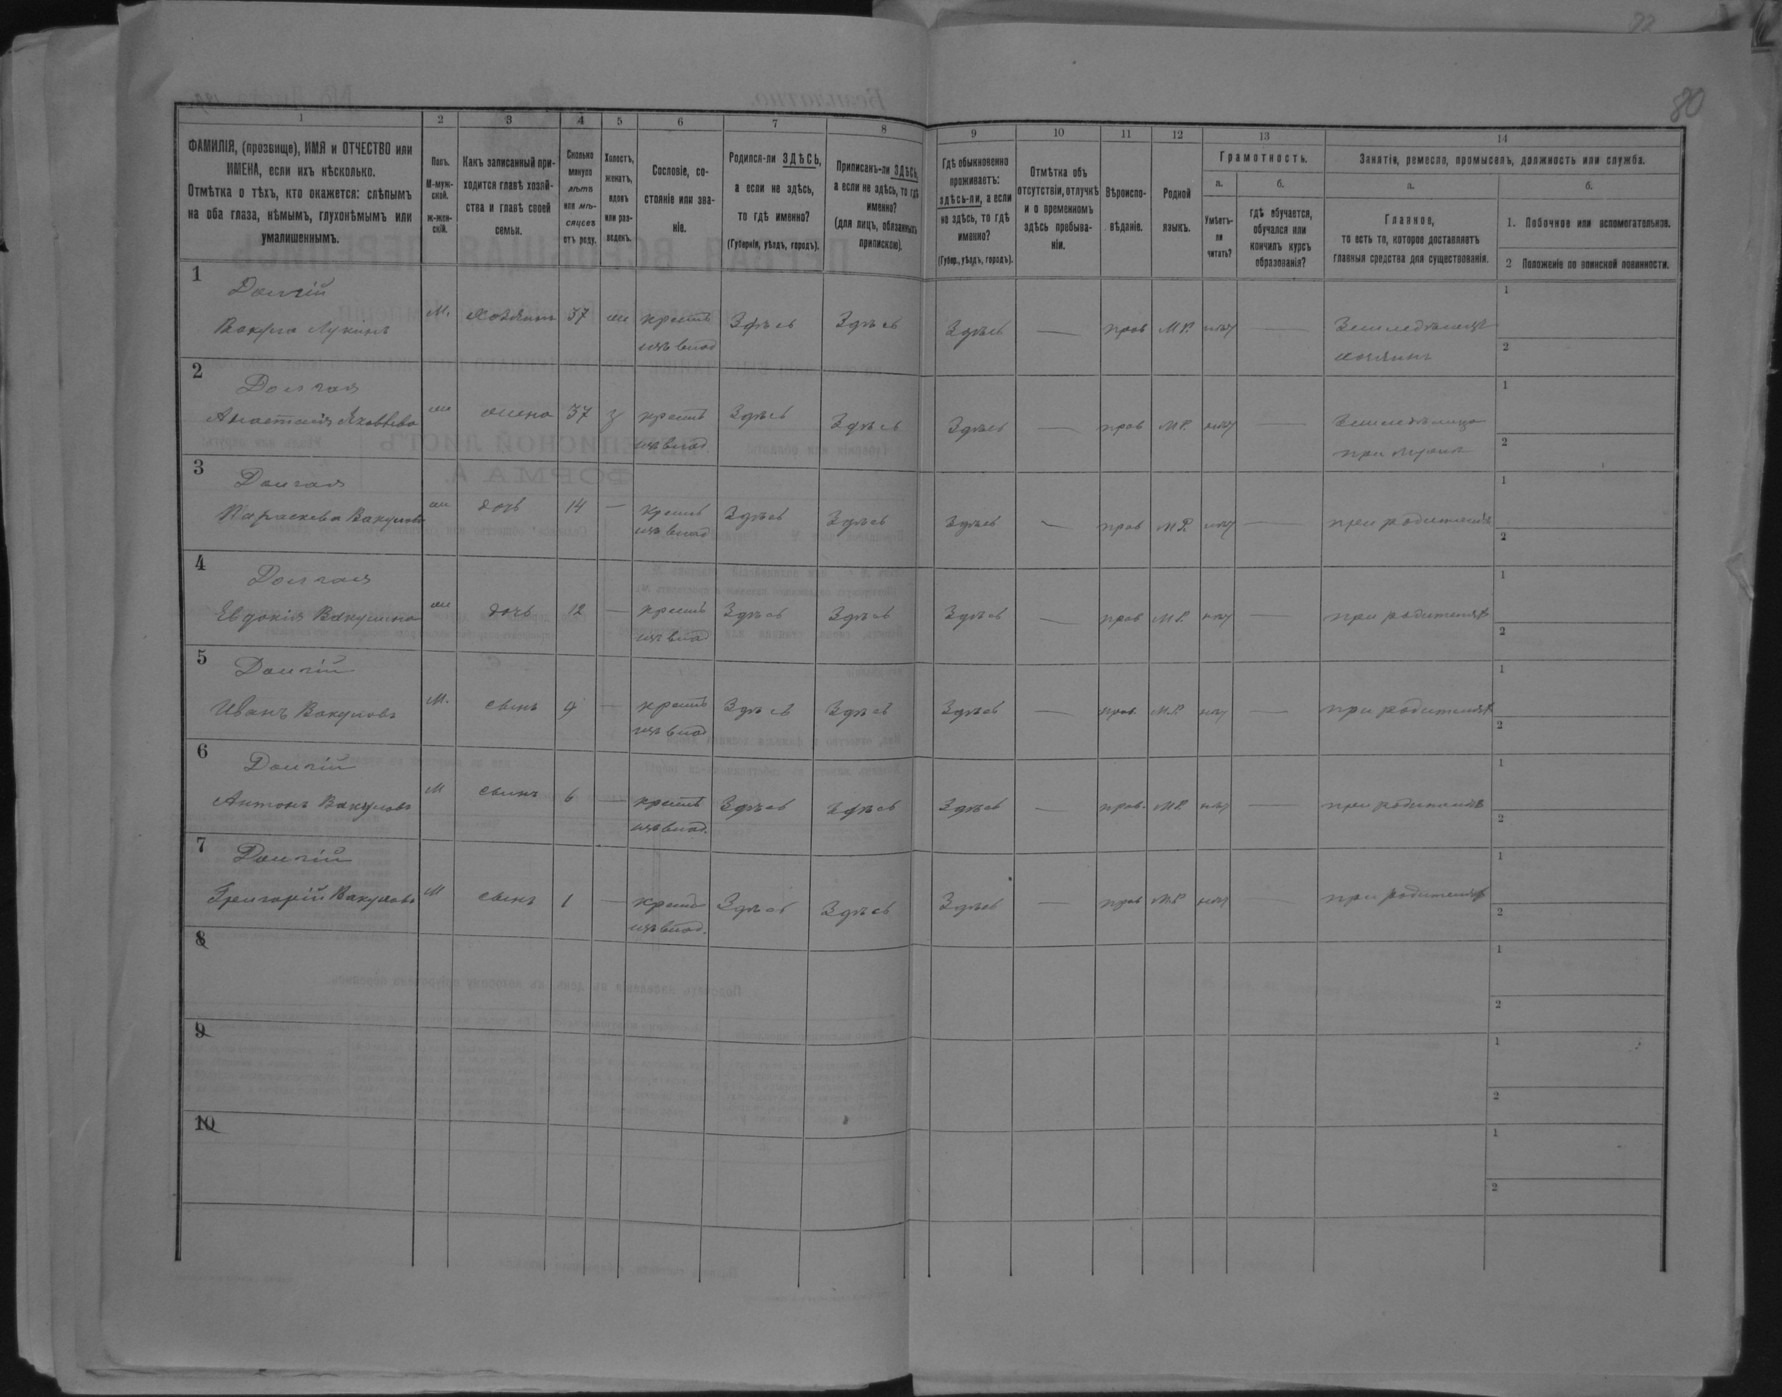 80
1 2 3 4 5 6 7 8 9 10 11 12 13 14
ФАМИЛІЯ, (прозвище), ИМЯ и ОТЧЕСТВО или
ИМЕНА, если ихъ нѣсколько.
Отмѣтка о тѣхъ, кто окажется: слѣпымъ
на оба глаза, нѣмымъ, глухонѣмымъ или
умалишеннымъ.
Полъ.
М-муж-
ской.
ж-жен-
скій.
Какъ записанный при-
ходится главѣ хозяй-
ства и главѣ своей
семьи.
Сколько
минуло
лѣтъ
или мѣ-
сяцевъ
отъ роду.
Холостъ,
женатъ,
вдовъ
или раз-
веденъ.
Сословіе, со-
стояніе или зва-
ніе.
Родился-ли ЗДѢСЬ,
а если не здѣсь,
то гдѣ именно?
(Губернія, уѣздъ, городъ).
Приписанъ-ли ЗДѢСЬ,
а если не здѣсь, то гдѣ
именно?
(для лицъ, обязанныхъ
припискою).
Гдѣ обыкновенно
проживаетъ:
здѣсь-ли, а если
не здѣсь, то гдѣ
именно?
(Губер., уѣздъ, городъ).
Отмѣтка объ
отсутствіи, отлучкѣ
и о временномъ
здѣсь пребыва-
ніи.
Вѣроиспо-
вѣданіе.
Родной
языкъ.
Грамотность.
а.
Умѣетъ-
ли
читать?
б.
гдѣ обучается,
обучался или
кончилъ курсъ
образованія?
Занятіе, ремесло, промыселъ, должность или служба.
а.
Главное,
то есть то, которое доставляетъ
главныя средства для существованія.
б.
1. Побочное или вспомогательное.
2 Положеніе по воинской повинности.
1
Долгій
Вакула Лукинъ М. хозяинъ 37 ж крест Здѣсь Здѣсь Здѣсь — прав М.Р. нѣт — Земледѣлецъ
изъ влад хозяинъ
1
2
2
Долгая
Анастасія Яковлева ж жена 37 з крест Здѣсь Здѣсь Здѣсь — прав М.Р. нѣт — Земледѣлица
изъ влад. при мужѣ
1
2
3
Долгая
Параскева Вакулова ж дочь 14 — крест Здѣсь Здѣсь Здѣсь — прав М.Р. нѣт — при родителяхъ
изъ влад
1
2
4
Долгая
Евдокія Вакулова ж дочь 12 — крест Здѣсь Здѣсь Здѣсь — прав М.Р. нѣт — при родителяхъ
изъ влад
1
2
5
Долгій
Иванъ Вакуловъ М. сынъ 9 — крест Здѣсь Здѣсь Здѣсь — прав. М.Р. нѣт — при родителяхъ
изъ влад
1
2
6
Долгій
Антонъ Вакуловъ М сынъ 6 — крест Здѣсь Здѣсь Здѣсь — прав. М.Р. нѣт — при родителяхъ
изъ влад.
1
2
7
Долгій
Григорій Вакуловъ М сынъ 1 — крест Здѣсь Здѣсь Здѣсь — прав М.Р. нѣт — при родителяхъ
изъ влад.
1
2
8
1
2
9
1
2
10
1
2